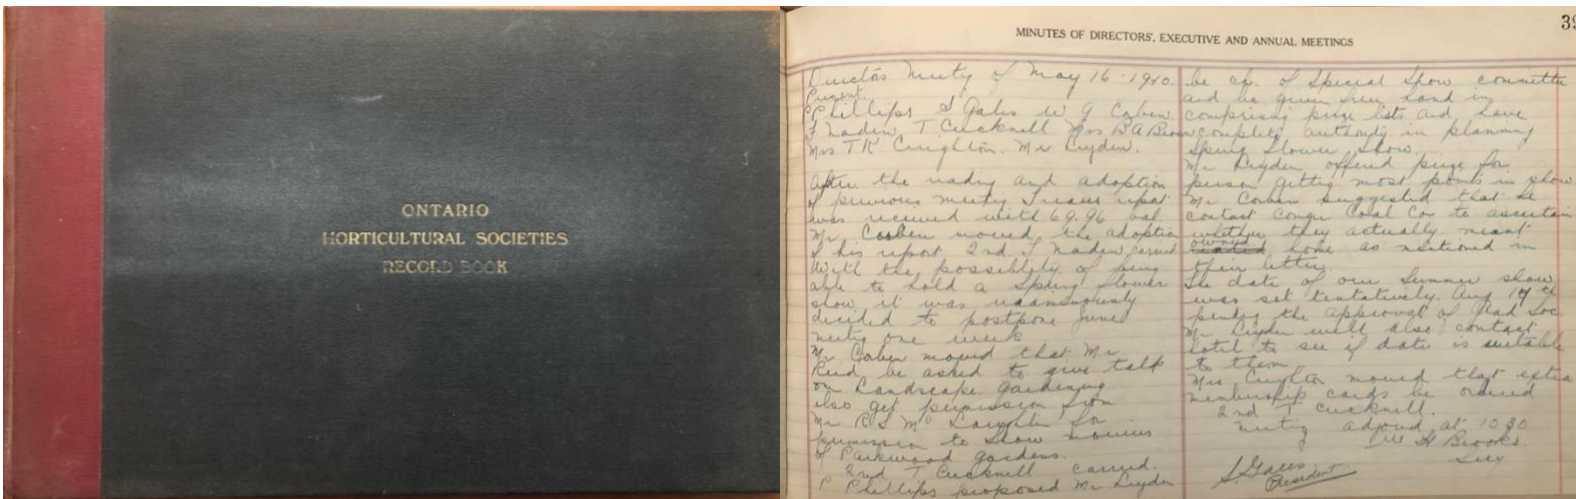 ONTARIO
HORTICULTURAL SOCIETIES
RECORD BOOK
39
MINUTES OF DIRECTORS', EXECUTIVE AND ANNUAL MEETINGS
Directors Meeting of May 16
Present.
P Phillips S Gales W G Corben
F Naden T Cucknell Mrs B A Brown
Mrs T K Creighton. Mr Lryden.
After the reading and adoption
of previous meeting Treas repot
was received with 69.96 bal
Mr. Corben moved the adoption
of his report 2nd F Naden carried
With the possibility of being
able to hold a Spring flower
show it was unamimously
decided to postpone June
meeting one week
Mr Corben moved that Mr
Reid be asked to give talk
on Landscape gardening
also get permission from
Mr R S McLaughlin for
permission to show movies
of Parkwood gardens.
2nd T Cucknell carried.
P Phillips proposed Mr Lryden
be ch. of Special Show committee
and be given free hand in
comprising prize lists and have
complete authority in planning
Spring Flower Show.
Mr Lryden offered prize for
person getting most points in show
Mr Corben suggested that he
contact Conger Coal Co to ascertain
whether they actually meant
owned home as mentioned in
their letter
The date of our Summer show
was set tentatively. Aug
pending the approval of Glad Soc.
Mr Lryden will also contact
hotel to see if date is suitable
to them
Mrs Creighton moved that extra
membership cards be ordered
2nd T Cucknell.
Meeting adjourd at 10 30
W H Brooks.
Secy
S. Gales
President